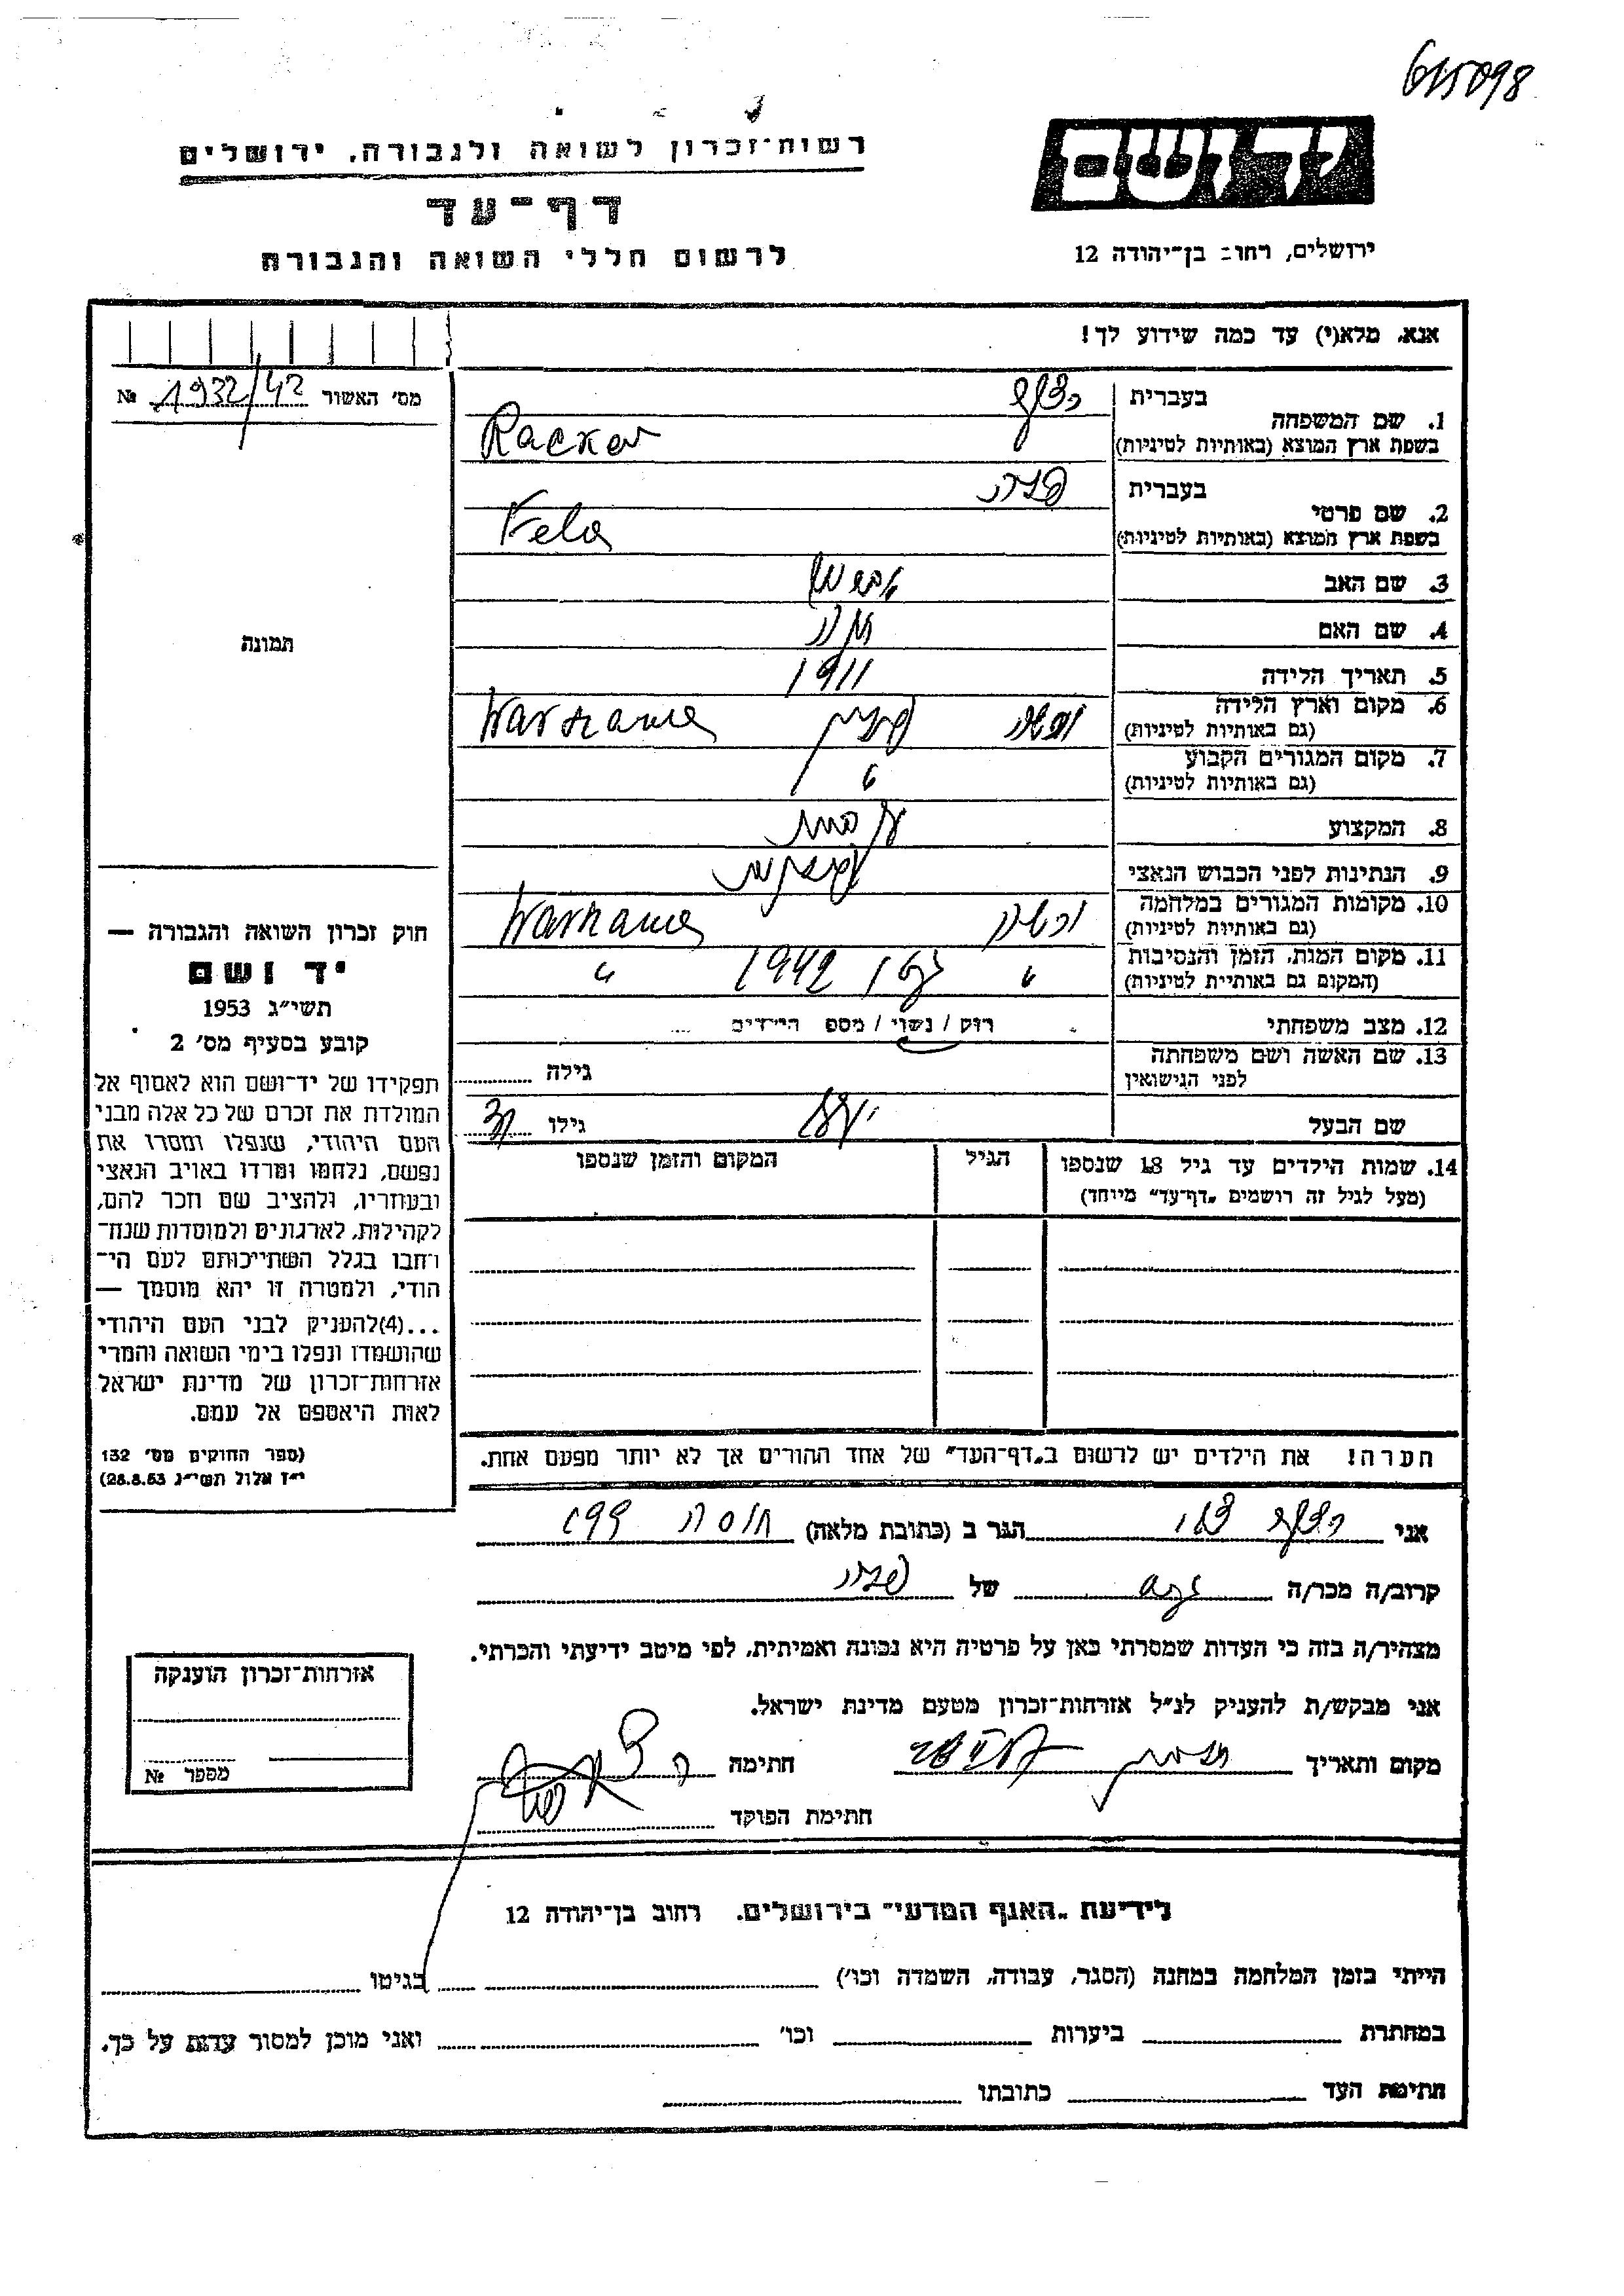 רשות־זכרון לשואה ולגבורה, ירושלים
דף־עד
לרשום חללי השואה והגבורה
ידושם
ירושלים, רחוב בן־יהודה 12
אנא, מלא(י) עד כמה שידוע לך!
מס' האשור 1932/42 №
תמונה
בעברית
1. שם המשפחה
בשפת ארץ המוצא (באותיות לטיניות) Racker
בעברית פלה
2. שם פרטי
בשפת ארץ המוצא (באותיות לטיניות) Fela
3. שם האב
4. שם האם
5. תאריך הלידה 1911
6. מקום וארץ הלידה ורשה פולין Warszawa
(גם באותיות לטיניות)
7. מקום המגורים הקבוע "
(גם באותיות לטיניות)
8. המקצוע
9. הנתינות לפני הכבוש הנאצי
10. מקומות המגורים במלחמה ורשה Warszawa
(גם באותיות לטיניות)
11. מקום המות, הזמן והנסיבות " 1942 "
(המקום גם באותיית לטיניות)
12. מצב משפחתי רווק / נשוי / מספ הילדים
13. שם האשה ושם משפחתה גילה
לפני הנישואין
שם הבעל גילו
14. שמות הילדים עד גיל 18 שנספו הגיל המקום והזמן שנספו
(מעל לגיל זה רושמים „דף־עד" מיוחד)
הערה! את הילדים יש לרשום ב„דף־העד" של אחד ההורים אך לא יותר מפעם אחת.
חוק זכרון השואה והגבורה —
יד ושם
תשי״ג 1953
קובע בסעיף מס' 2
תפקידו של יד־ושם הוא לאסוף אל
המולדת את זכרם של כל אלה מבני
העם היהודי, שנפלו ומסרו את
נפשם, נלחמו ומרדו באויב הנאצי
ובעוזריו, ולהציב שם וזכר להם,
לקהילות, לארגונים ולמוסדות שנח־
רחבו בגלל השתייכותם לעם הי־
הודי, ולמטרה זו יהא מוסמך —
...(4)להעניק לבני העם היהודי
שהושמדו ונפלו בימי השואה והמרי
אזרחות־זכרון של מדינת ישראל
לאות היאספם אל עמם.
(ספר החוקים מס' 132
י״ז אלול תשי״ג 28.8.53)
אני הגר ב (כתובת מלאה)
קרוב/ה מכר/ה של פלה
מצהיר/ה בזה כי העדות שמסרתי כאן על פרטיה היא נכונה ואמיתית, לפי מיטב ידיעתי והכרתי.
אני מבקש/ת להעניק לנ״ל אזרחות־זכרון מטעם מדינת ישראל.
מקום ותאריך חתימה
חתימת הפוקד
אזרחות־זכרון הוענקה
מספר №
לידיעת „האגף המדעי" בירושלים. רחוב בן־יהודה 12
הייתי בזמן המלחמה במחנה (הסגר, עבודה, השמדה וכו') בגיטו
במחתרת ביערות וכו' ואני מוכן למסור עדות על כך.
חתימת העד כתובתו